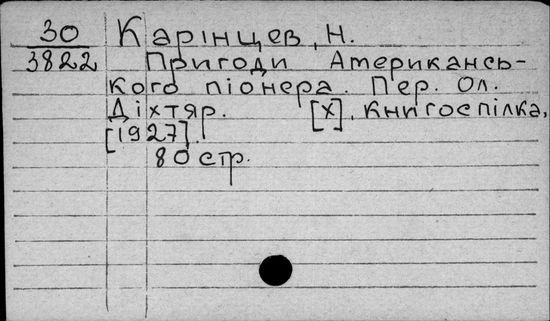 30 Карінцев, Н.
3822 Пригоди Американсь-
кого піонера. Пер. Ол.
Діхтяр. [Х], Книгоспілка,
[1927].
80 стр.